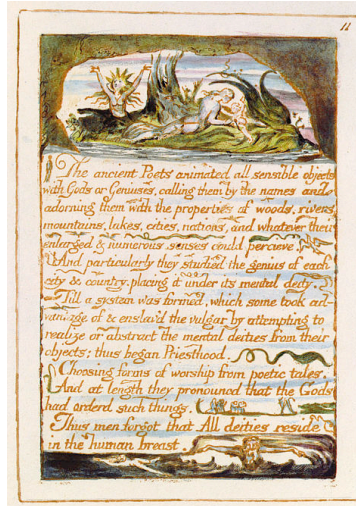 11
The ancient Poets animated all sensible objects
with Gods or Geniuses, calling them by the names and
adorning them with the properties of woods, rivers,
mountains, lakes, cities, nations, and whatever their
enlarged & numerous senses could percieve.
And particularly they studied the genius of each
city & country, placing it under its mental deity.
Till a system was formed, which some took ad-
vantage of & enslav'd the vulgar by attempting to
realize or abstract the mental deities from their
objects: thus began Priesthood.
Choosing forms of worship from poetic tales.
And at length they pronounced that the Gods
had orderd such things.
Thus men forgot that All deities reside
in the human breast